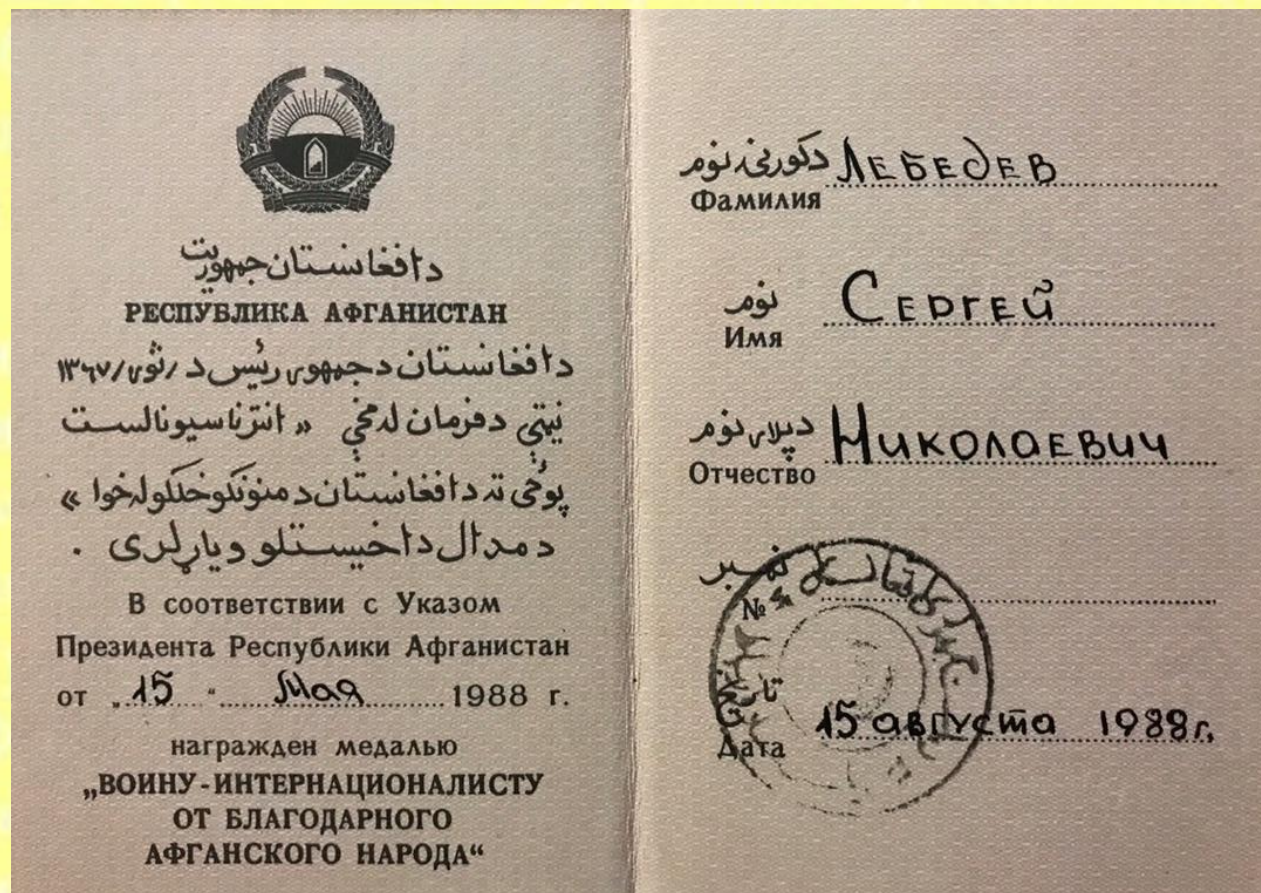 د افغانستان جمهوریت
РЕСПУБЛИКА АФГАНИСТАН
د افغانستان د جمهوری رئیس د /ثور/۱۳۶۷
نیټې د فرمان له مخې « انترناسیونالست
پوځی ته د افغانستان د منونکو خلکو له خوا »
د مدال د اخیستلو ویاړ لری .
В соответствии с Указом
Президента Республики Афганистан
от „15 " Мая 1988 г.
награжден медалью
„ВОИНУ-ИНТЕРНАЦИОНАЛИСТУ
ОТ БЛАГОДАРНОГО
АФГАНСКОГО НАРОДА“
د کورنۍ نوم ЛЕБЕДЕВ
Фамилия
نوم СЕРГЕЙ
Имя
د پلار نوم НИКОЛАЕВИЧ
Отчество
نمبر
№
15 августа 1988г.
Дата